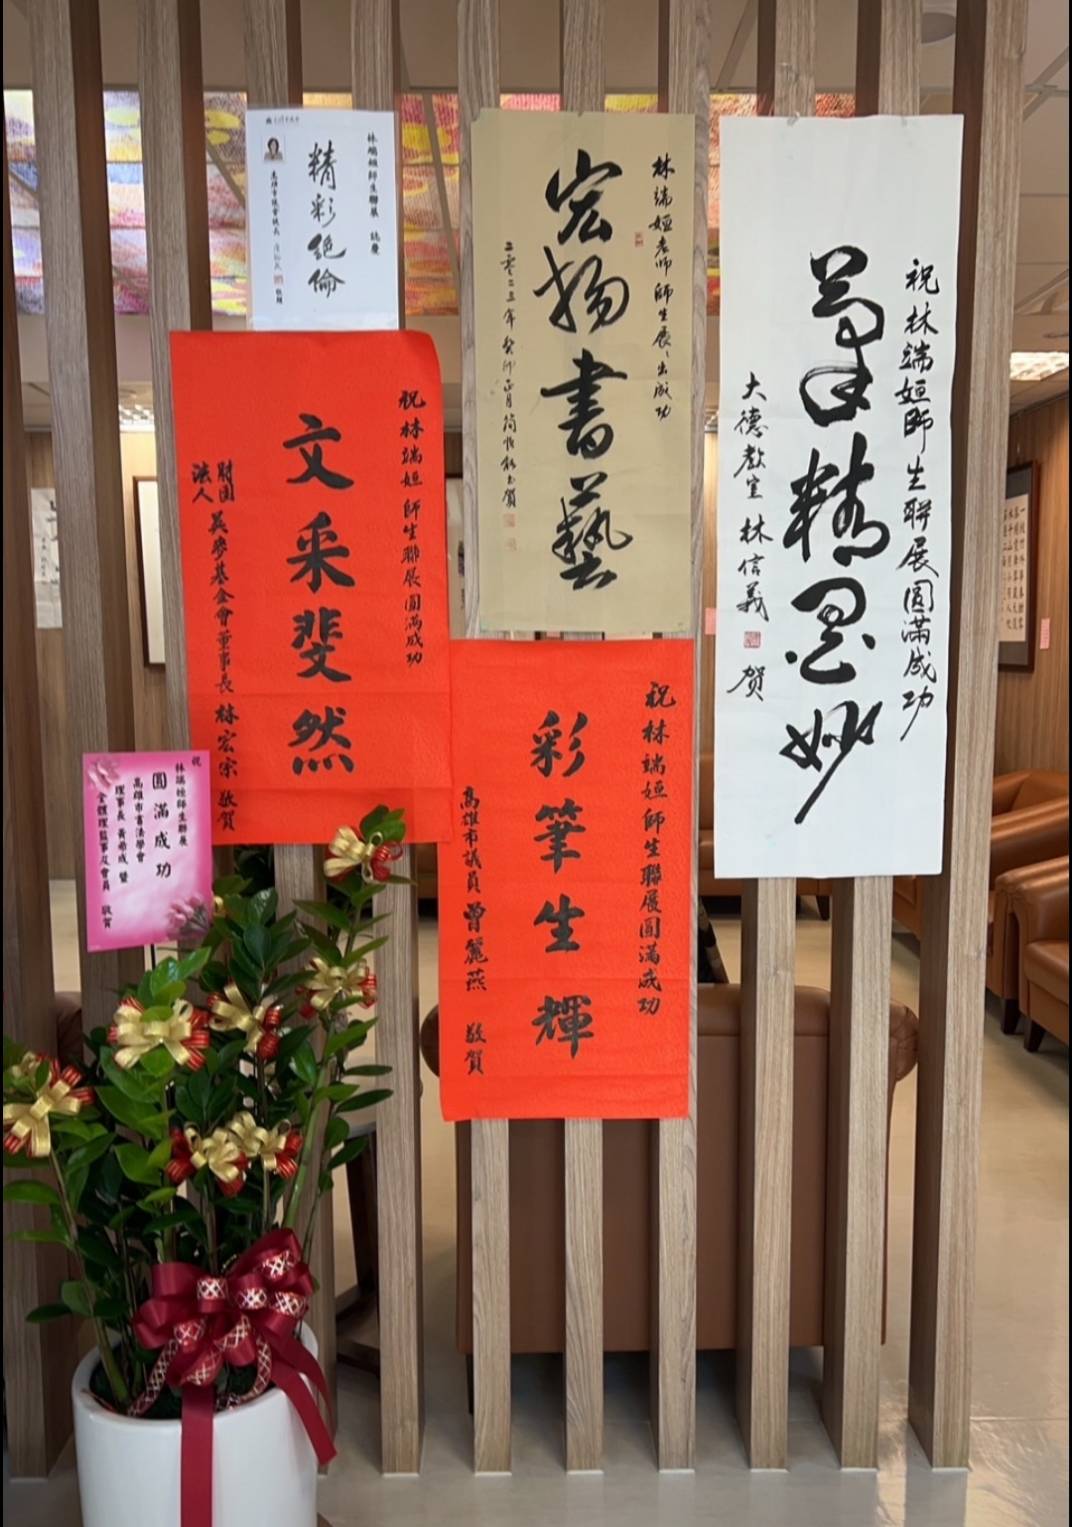 林端姮師生聯展 誌慶
精彩絕倫
高雄市議會議長
敬賀
林端姮老師師生展、出成功
宏揚書藝
二零二三年癸卯正月
賀
祝林端姮師生聯展圓滿成功
筆精墨妙
大德教室 林信義 賀
祝林端姮 師生聯展圓滿成功
文采斐然
財團
法人
美麥基金會董事長 林宏宗 敬賀
祝林端姮師生聯展圓滿成功
彩筆生輝
高雄市議員 曾麗燕 敬賀
祝
林端姮師生聯展
圓滿成功
高雄市書法學會
理事長 黃 成 暨
全體理監事及會員 敬賀